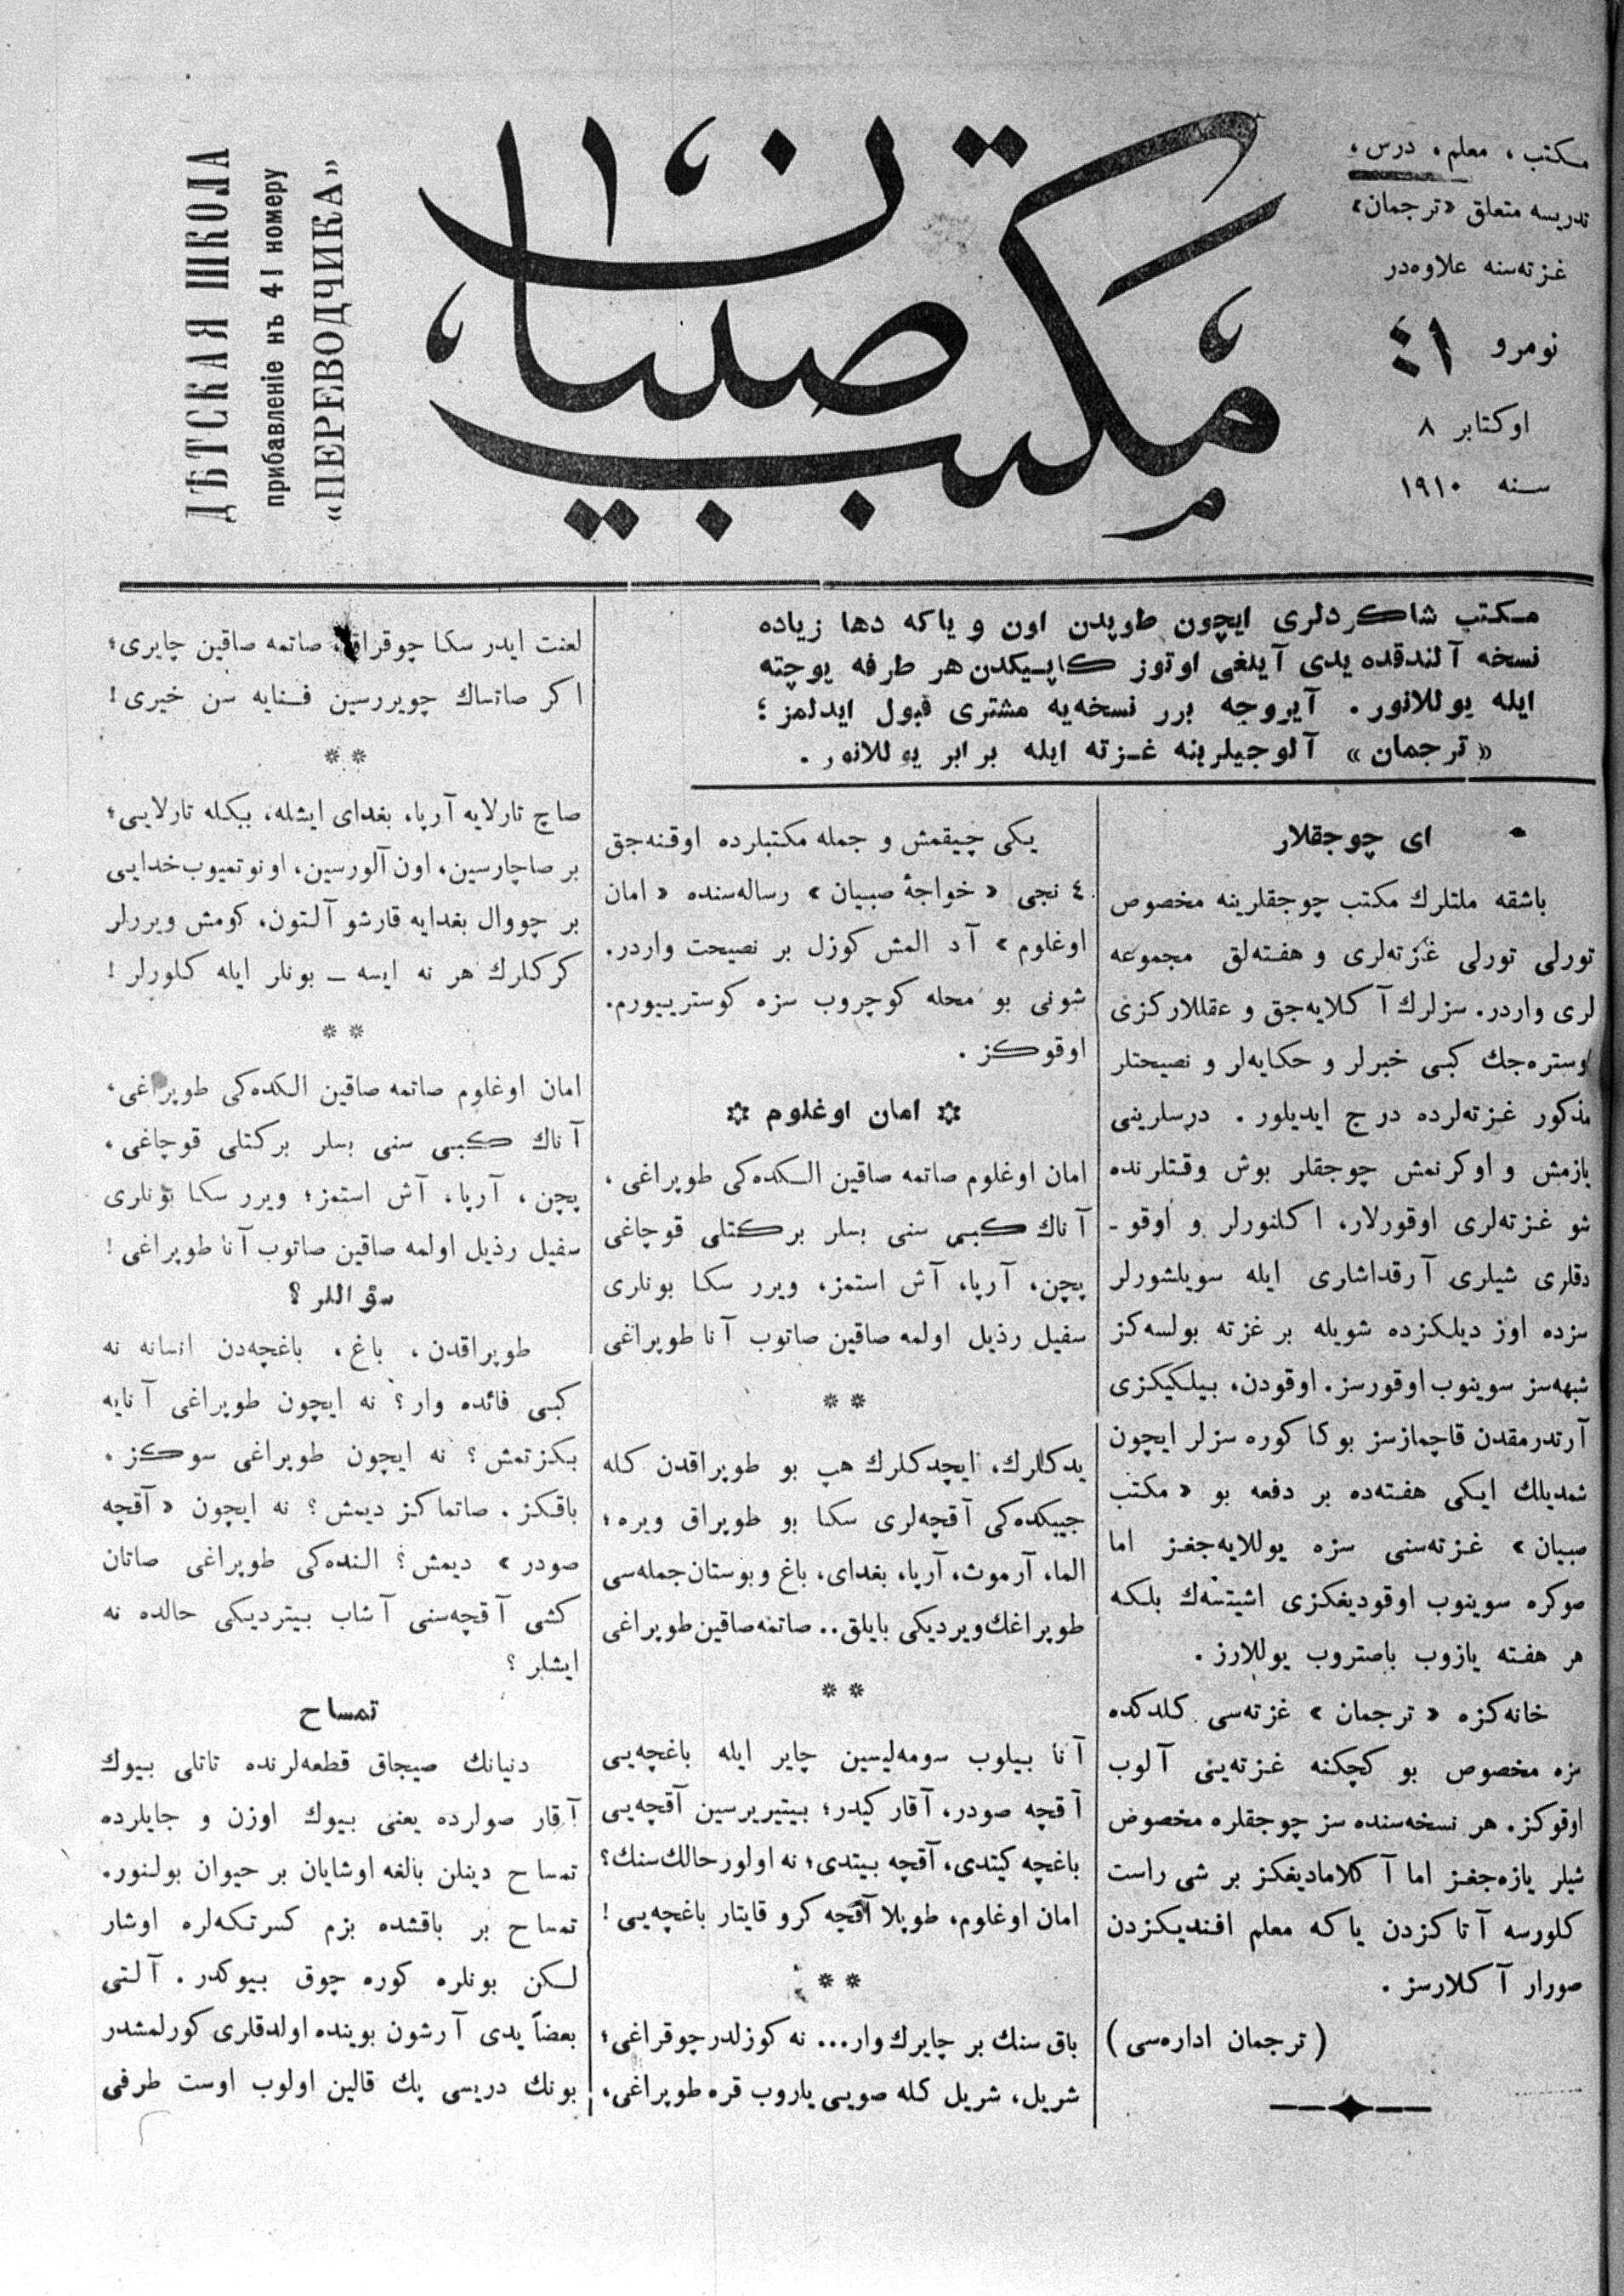 مكتب، معلم، درس،
تدريسه متعلق «ترجمان»
غزته‌سنه علاوه‌در
نومرو ٤١
اوكتابر ٨
سنه ١٩١٠
مكتب صبيان
ДѢТСКАЯ ШКОЛА
прибавленіе къ 41 номеру
«ПЕРЕВОДЧИКА»
مكتب شاكردلرى ايچون طوپدن اون و ياكه دها زياده
نسخه آلندقده يدى آيلغى اوتوز كاپيكدن هر طرفه پوچته
ايله يوللانور. آيروجه برر نسخه‌يه مشترى قبول ايدلمز؛
«ترجمان» آلوجيلرينه غزته ايله برابر يوللانور.
اى چوجقلار
باشقه ملتلرك مكتب چوجقلرينه مخصوص
تورلى تورلى غزته‌لرى و هفته‌لق مجموعه
لرى واردر. سزلرك آكلايه‌جق و عقللاركزى
وستره‌جك كبى خبرلر و حكايه‌لر و نصيحتلر
مذكور غزته‌لرده درج ايديلور. درسلرينى
يازمش و اوكرنمش چوجقلر بوش وقتلرنده
شو غزته‌لرى اوقورلار، اكلنورلر و اوقو-
دقلرى شيلرى آرقداشارى ايله سويلشورلر
سزده اوز ديلكزده شويله بر غزته بولسه‌كز
شبهه‌سز سوينوب اوقورسز. اوقودن، بيلكيكزى
آرتدرمقدن قاچمازسز بوكا كوره سزلر ايچون
شمديلك ايكى هفته‌ده بر دفعه بو «مكتب
صبيان» غزته‌سنى سزه يوللايه‌جغز اما
صوكره سوينوب اوقوديغكزى اشيتسه‌ك بلكه
هر هفته يازوب باصتروب يوللارز.
خانه‌كزه «ترجمان» غزته‌سى كلدكده
سزه مخصوص بو كچكنه غزته‌ينى آلوب
اوقوكز. هر نسخه‌سنده سز چوجقلره مخصوص
شيلر يازه‌جغز اما آكلاماديغكز بر شى راست
كلورسه آتاكزدن ياكه معلم افنديكزدن
صورار آكلارسز.
(ترجمان اداره‌سى)
يكى چيقمش و جمله مكتبلرده اوقنه‌جق
٤ نجى «خواجهٔ صبيان» رساله‌سنده «امان
اوغلوم» آد المش كوزل بر نصيحت واردر.
شونى بو محله كوچروب سزه كوستريييورم.
اوقوكز.
امان اوغلوم
امان اوغلوم صاتمه صاقين الكده‌كى طوپراغى،
آناك كبى سنى بسلر بركتلى قوچاغى
پچن، آرپا، آش استمز، ويرر سكا بونلرى
سفيل رذيل اولمه صاقين صاتوب آنا طوپراغى
**
يدكلرك، ايچدكلرك هپ بو طوپراقدن كله
جيبكده‌كى آقچه‌لرى سكا بو طوپراق ويره؛
الما، آرموث، آرپا، بغداى، باغ و بوستان جمله‌سى
طوپراغك ويرديكى بايلق.. صاتمه صاقين طوپراغى
**
آنا بيلوب سومه‌ليسين چاير ايله باغچه‌يى
آقچه صودر، آقار كيدر؛ بيتيريرسين آقچه‌يى
باغچه كيتدى، آقچه بيتدى؛ نه اولور حالك سنك؟
امان اوغلوم، طوپلا آقچه كرو قايتار باغچه‌يى!
**
باق سنك بر چايرك وار... نه كوزلدر چوقراغى؛
شريل، شريل كله صويى ياروب قره طوپراغى،
لعنت ايدر سكا چوقراق، صاتمه صاقين چايرى؛
اكر صاتساك چويررسين فنايه سن خيرى!
**
صاچ تارلايه آرپا، بغداى ايشله، بكله تارلايى؛
بر صاچارسين، اون آلورسين، اونوتميوب خدايى
بر چووال بغدايه قارشو آلتون، كومش ويررلر
كركلرك هر نه ايسه ـ بونلر ايله كلورلر!
**
امان اوغلوم صاتمه صاقين الكده‌كى طوپراغى،
آناك كبى سنى بسلر بركتلى قوچاغى،
پچن، آرپا، آش استمز؛ ويرر سكا بونلرى
سفيل رذيل اولمه صاقين صاتوب آنا طوپراغى!
سؤاللر؟
طوپراقدن، باغ، باغچه‌دن انسانه نه
كبى فائده وار؟ نه ايچون طوپراغى آنايه
بكزتمش؟ نه ايچون طوپراغى سوكز.
باقكز. صاتماكز ديمش؟ نه ايچون «آقچه
صودر» ديمش؟ النده‌كى طوپراغى صاتان
كشى آقچه‌سنى آشاب بيترديكى حالده نه
ايشلر؟
تمساح
دنيانك صيجاق قطعه‌لرنده تاتلى بيوك
آقار صولرده يعنى بيوك اوزن و جايلرده
تمساح دينلن بالغه اوشايان بر حيوان بولنور.
تمساح بر باقشده بزم كسرتكه‌لره اوشار
لكن بونلره كوره چوق بيوكدر. آلتى
بعضاً يدى آرشون بوينده اولدقلرى كورلمشدر
بونك دريسى پك قالين اولوب اوست طرفى